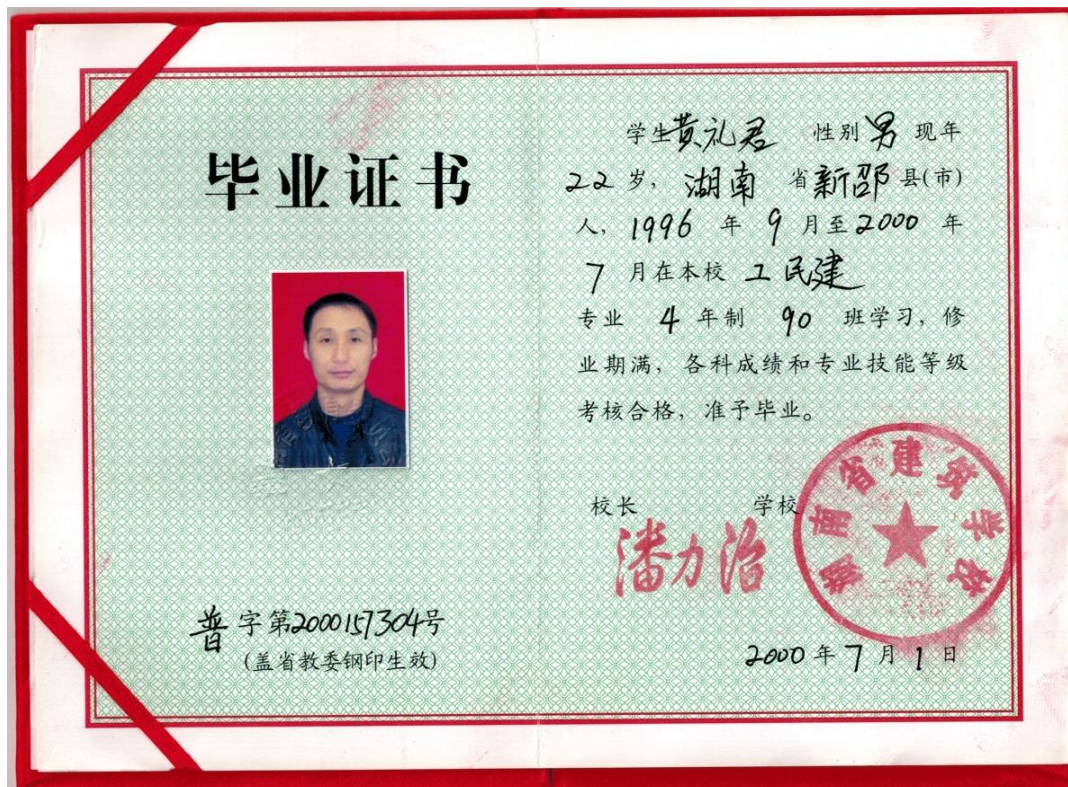 毕业证书
普字第2000157304号
(盖省教委钢印生效)
学生黄礼君 性别男 现年
22岁, 湖南 省新邵县(市)
人, 1996 年 9 月至2000 年
7 月在本校 工民建
专业 4 年制 90 班学习, 修
业期满, 各科成绩和专业技能等级
考核合格, 准予毕业。
校长 学校
潘力治
湖南省建筑学校
2000 年 7 月 1 日